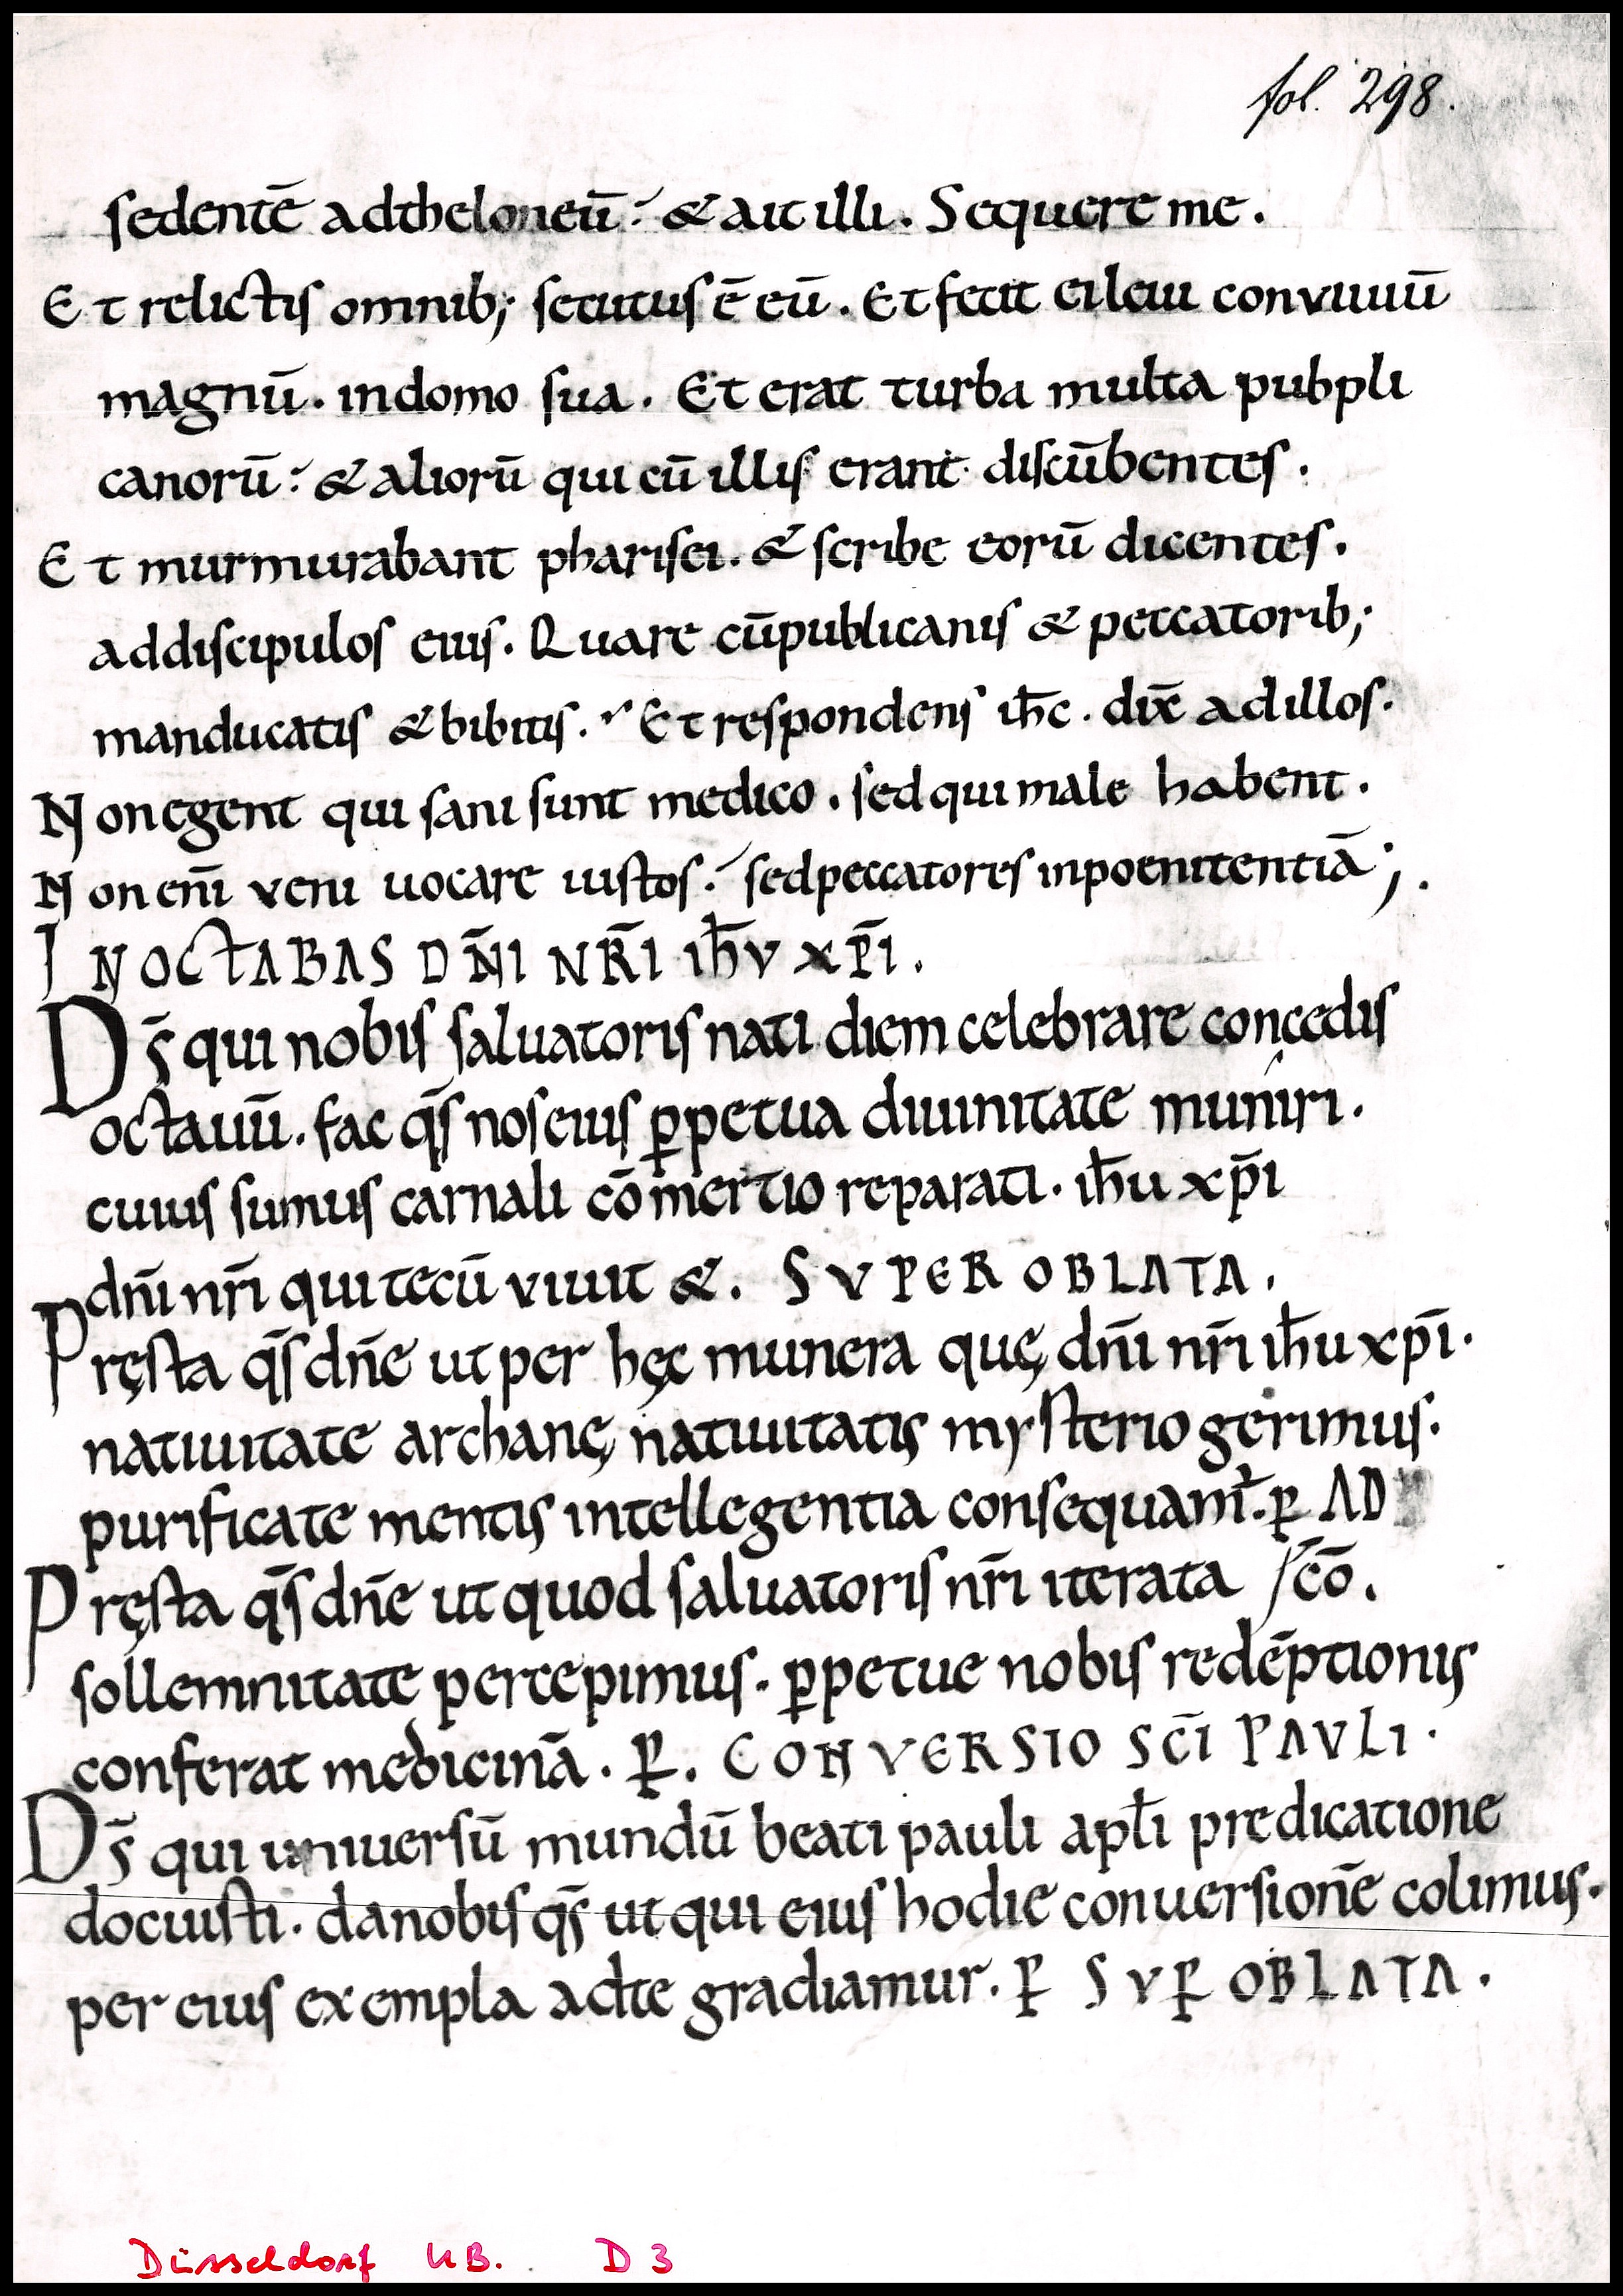 fol. 298.
sedentē adtheloneū. & ait illi. Sequere me.
Et relictis omnib; secutus ē eū. Et fecit ei leui conviuiū
magnū. indomo sua. Et erat turba multa pubpli
canorū. & aliorū qui cū illis erant discūbentes.
Et murmurabant pharisei. & scribe eorū dicentes.
addiscipulos eius. Quare cūpublicanis & peccatorib;
manducatis & bibitis. Et respondens ih̄c. dix̄ adillos.
Nonegent qui sani sunt medico. sed qui male habent.
Non eni̅ veni uocare iustos. sedpeccatores inpoenitentiā;.
IN OCTABAS DN̄I NR̄I IH̄V XP̄I.
Ds̄ qui nobis saluatoris nati diem celebrare concedis
octauū. fac qs̄ nos eius ꝑpetua diuinitate muniri.
cuius sumus carnali cōmertio reparati. ih̄u xp̄i
dn̄i nr̄i qui tecū viuit &. SVPER OBLATA.
Pręsta qs̄ dn̄e ut per hęc munera quę dn̄i nr̄i ih̄u xp̄i.
natiuitate archanę natiuitatis mysterio gerimus.
purificate mentis intellegentia consequam̄. ꝑ AD
Pręsta qs̄ dn̄e ut quod saluatoris nr̄i iterata cō.
sollemnitate percepimus. ꝑpetue nobis redēptionis
conferat medicinā. ꝑ. CONVERSIO SC̄I PAVLI.
Ds̄ qui uniuersū mundū beati pauli apl̄i predicatione
docuisti. danobis qs̄ ut qui eius hodie conuersionē colimus.
per eius exempla adte gradiamur. ꝑ SVꝑ OBLATA.
Düsseldorf UB. D 3